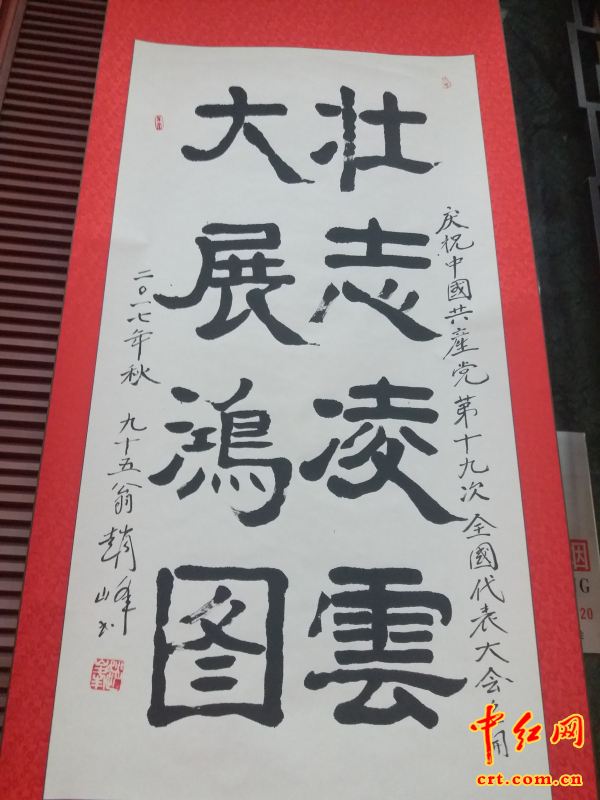 庆祝中國共産党第十九次全國代表大会召開
壮志凌雲
大展鴻图
二〇一七年秋 九十五翁 趙峰书
G
20
中红网
crt.com.cn